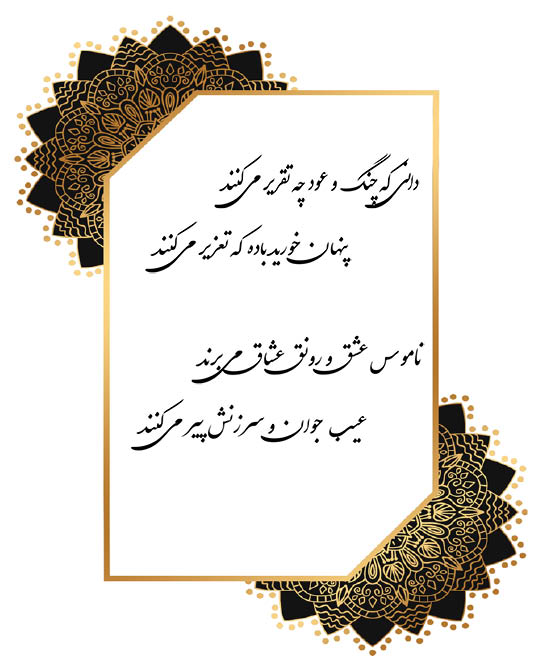 دانی که چنگ و عود چه تقریر می‌کنند
پنهان خورید باده که تعزیر می‌کنند
ناموس عشق و رونق عشاق می‌برند
عیب جوان و سرزنش پیر می‌کنند